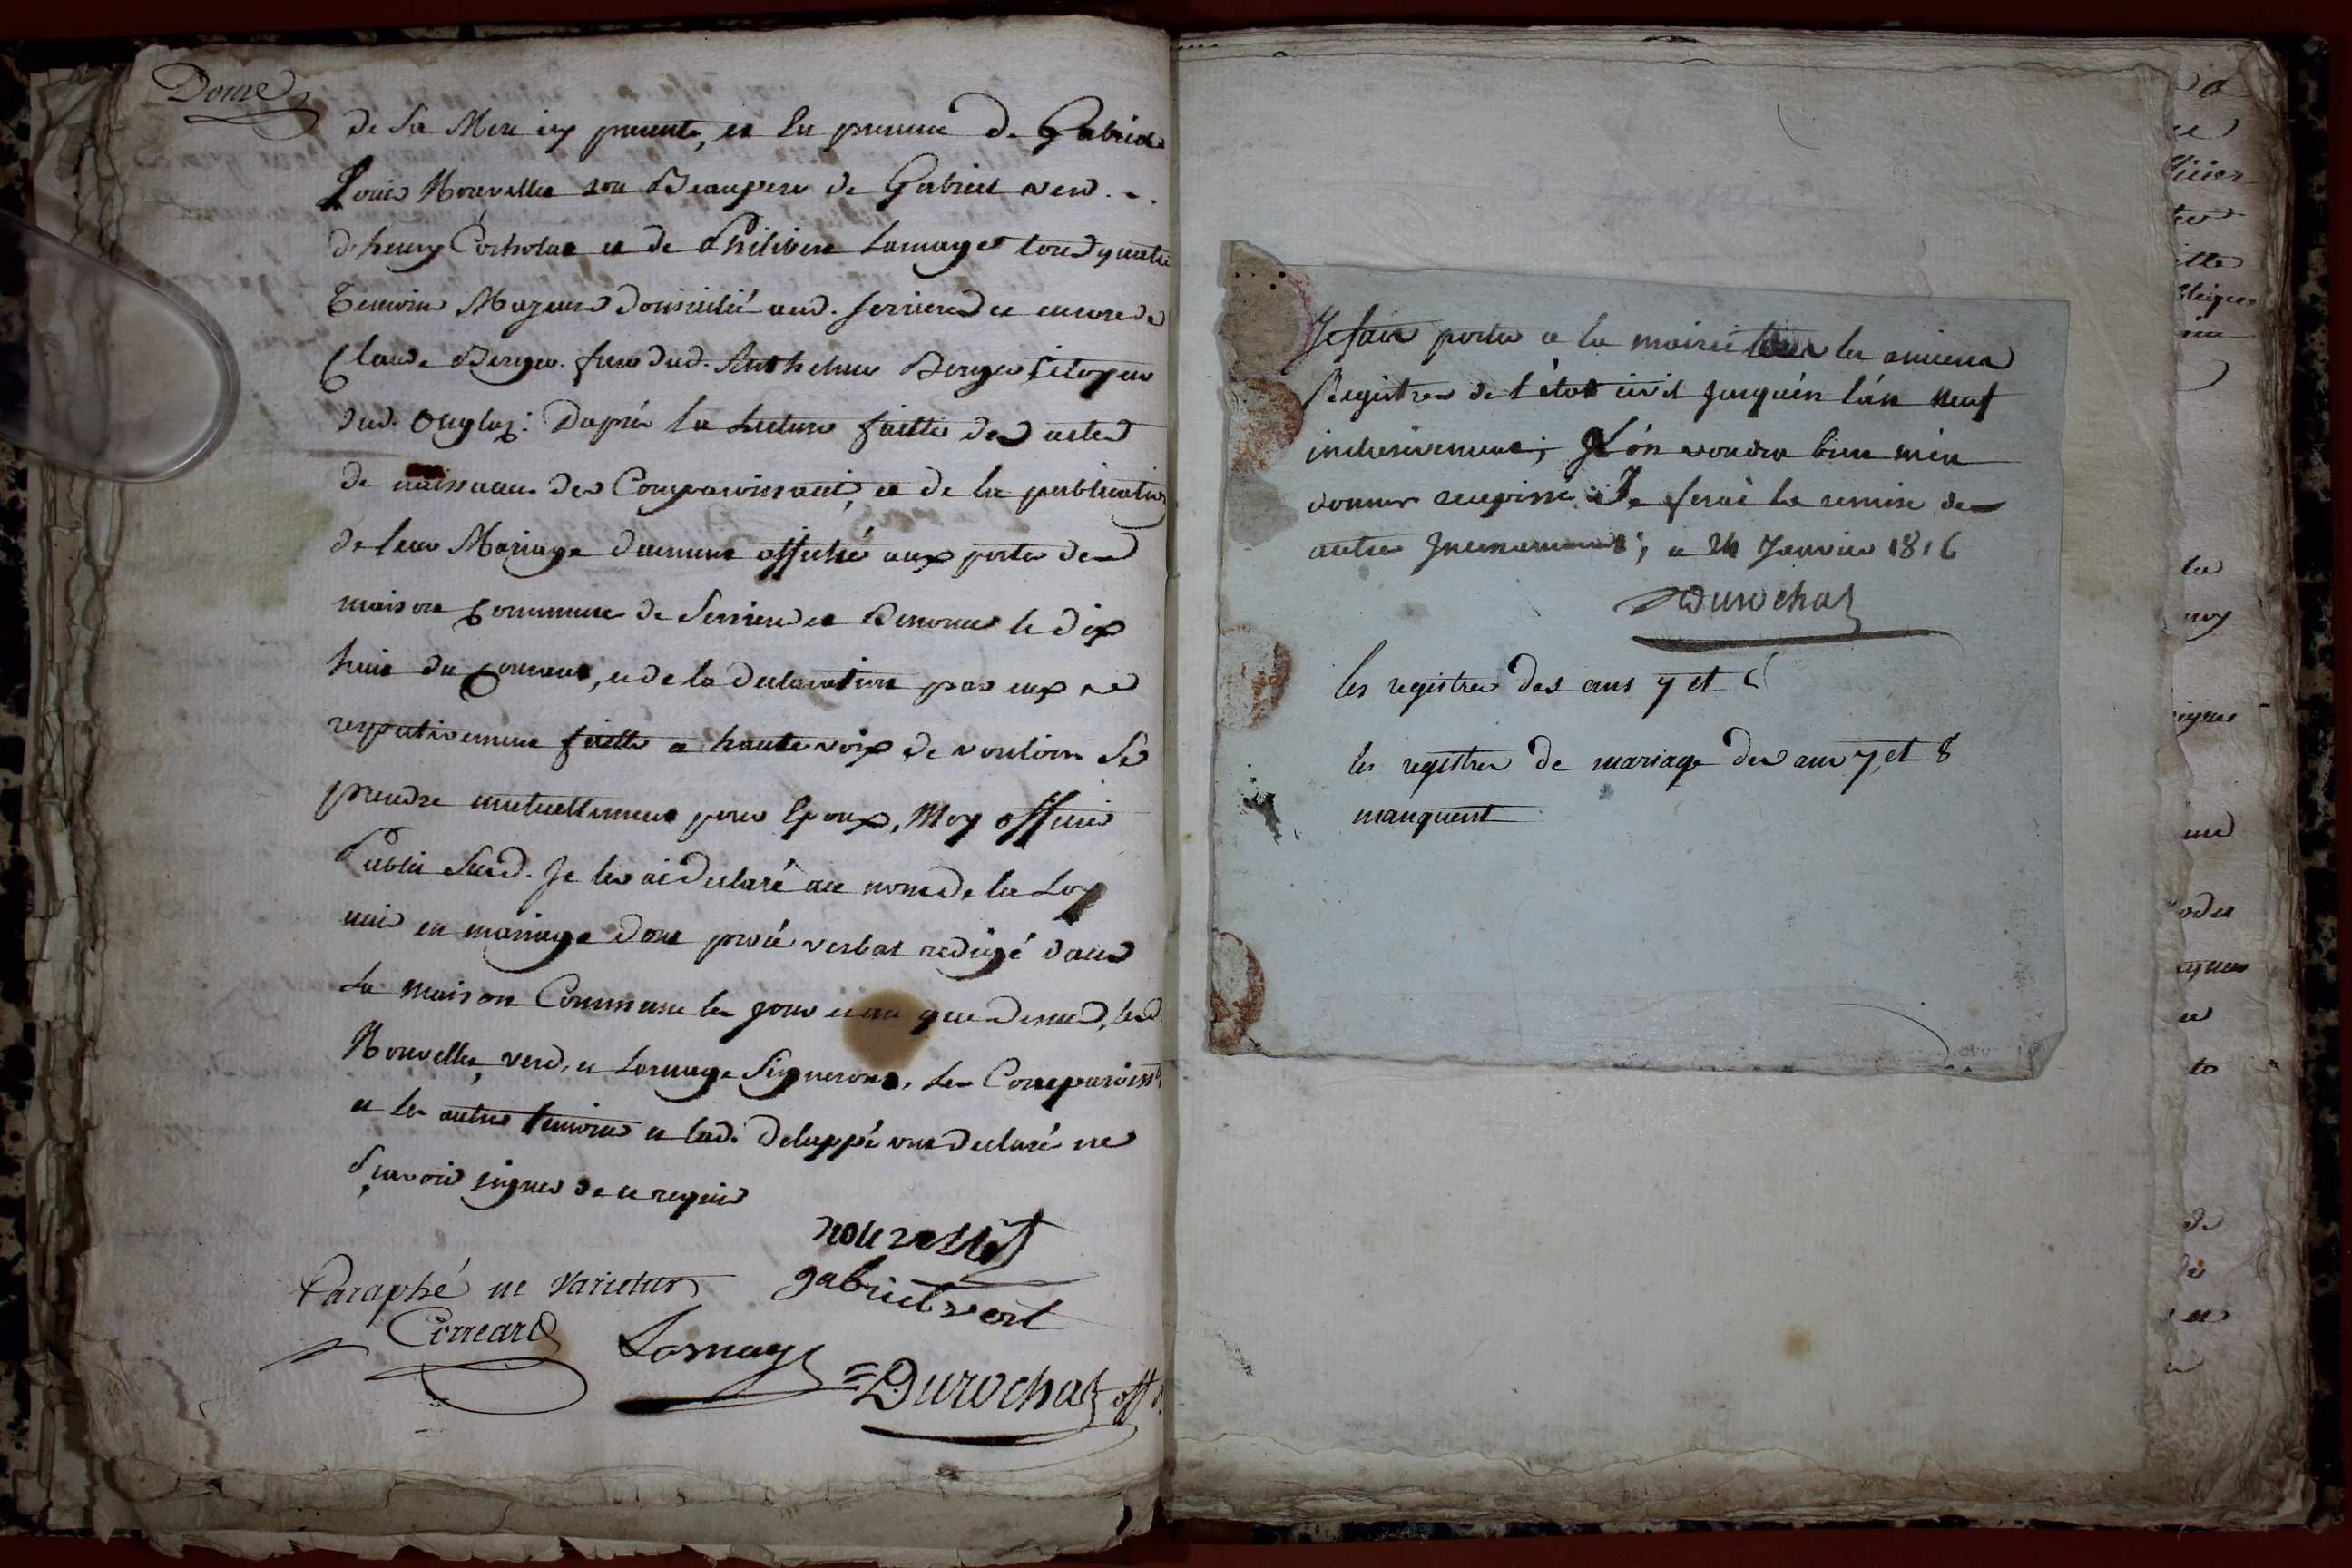 Douze
de Sa Mere icy presente, et En presence de Gabriel
Louis Nouvellet son Beaupere de Gabriel verd
d'henry Cocholat et de Philiber Lamage tous quatre
Temoins Majeurs domicilié aud. serrieres et encore de
Claude Berger frere dud. Anthelme Berger Citoyen
dud. Ouglas: Daprès la Lecture faitte des actes
de naissance des Comparoissant, et de la publication
de leur Mariage duement affiché aux porte des
maison Commune de Serrieres et Benonce le dix
huit du Courant, et de la declaration par eux
respectivement faitte a haute voix de vouloir Se
prendre mutuellement pour Epoux, Moy officier
Public Susd. Je les ai declaré au nom de la Loy
unis en mariage dont procé verbal redigé dans
La maison Commune les jour et an que dessus, lesd.
Nouvellet, verd, et Lamage Signeront, Les Comparoisst
et les autres temoins et lad. Deluppé ont declaré ne
Sçavoir signer de ce requis
nouvellet
gabriel vert
Paraphé ne varietur
Correard
Lamage
Durochat off
Je fais porter a la mairie les anciens
Registres de l'état civil jusqu'en l'an neuf
inclusivement; L'on voudra bien m'en
donner recepissé. Je ferai la remise des
autres Incessamment; a 24 Janvier 1816
Durochat
les registres des ans 7 et
les registres de mariage des ans 7 et 8
manquent